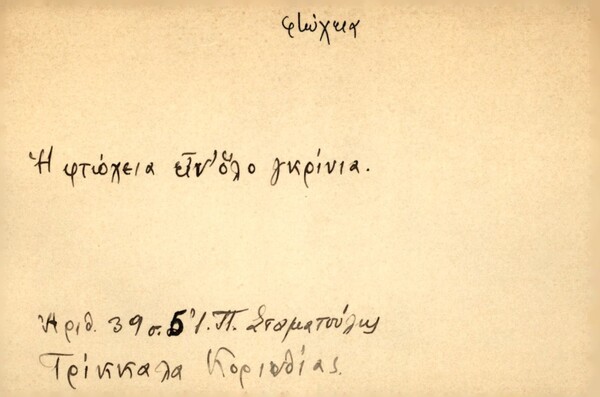 φτώχεια
Ἡ φτώχεια εἶν' ὅλο γκρίνια.
Ἀριθ. 39 σ. 5 Ἰ. Π. Σταματούλης
Τρίκκαλα Κορινθίας.